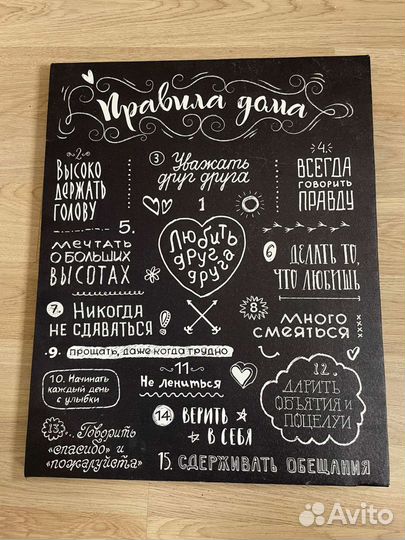 Правила дома
2.
Высоко
держать
голову
3 Уважать
друг друга
4.
Всегда
говорить
правду
1
Любить
друг
друга
5.
мечтать
о больших
высотах
6 делать то,
что любишь
7. Никогда
не сдаваться
8.
много
смеяться
9. прощать, даже когда трудно
10. Начинать
каждый день
с улыбки
11
Не лениться
12.
Дарить
объятия и
поцелуи
13. Говорить
«спасибо» и
«пожалуйста»
14. верить
в себя
15. сдерживать обещания
Avito